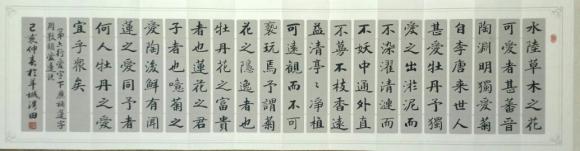 水陸草木之花
可愛者甚蕃晉
陶淵明獨愛菊
自李唐来世人
甚愛牡丹予獨
愛之出淤泥而
不染濯清漣而
不妖中通外直
不蔓不枝香遠
益清亭々淨植
可遠觀而不可
褻玩焉予謂菊
花之隱逸者也
牡丹花之富貴
者也蓮花之君
子者也噫菊之
愛陶後鮮有聞
蓮之愛同予者
何人牡丹之愛
宜乎衆矣
第六行愛字下應補蓮字
周敦頤愛蓮説
己亥仲春於羊城